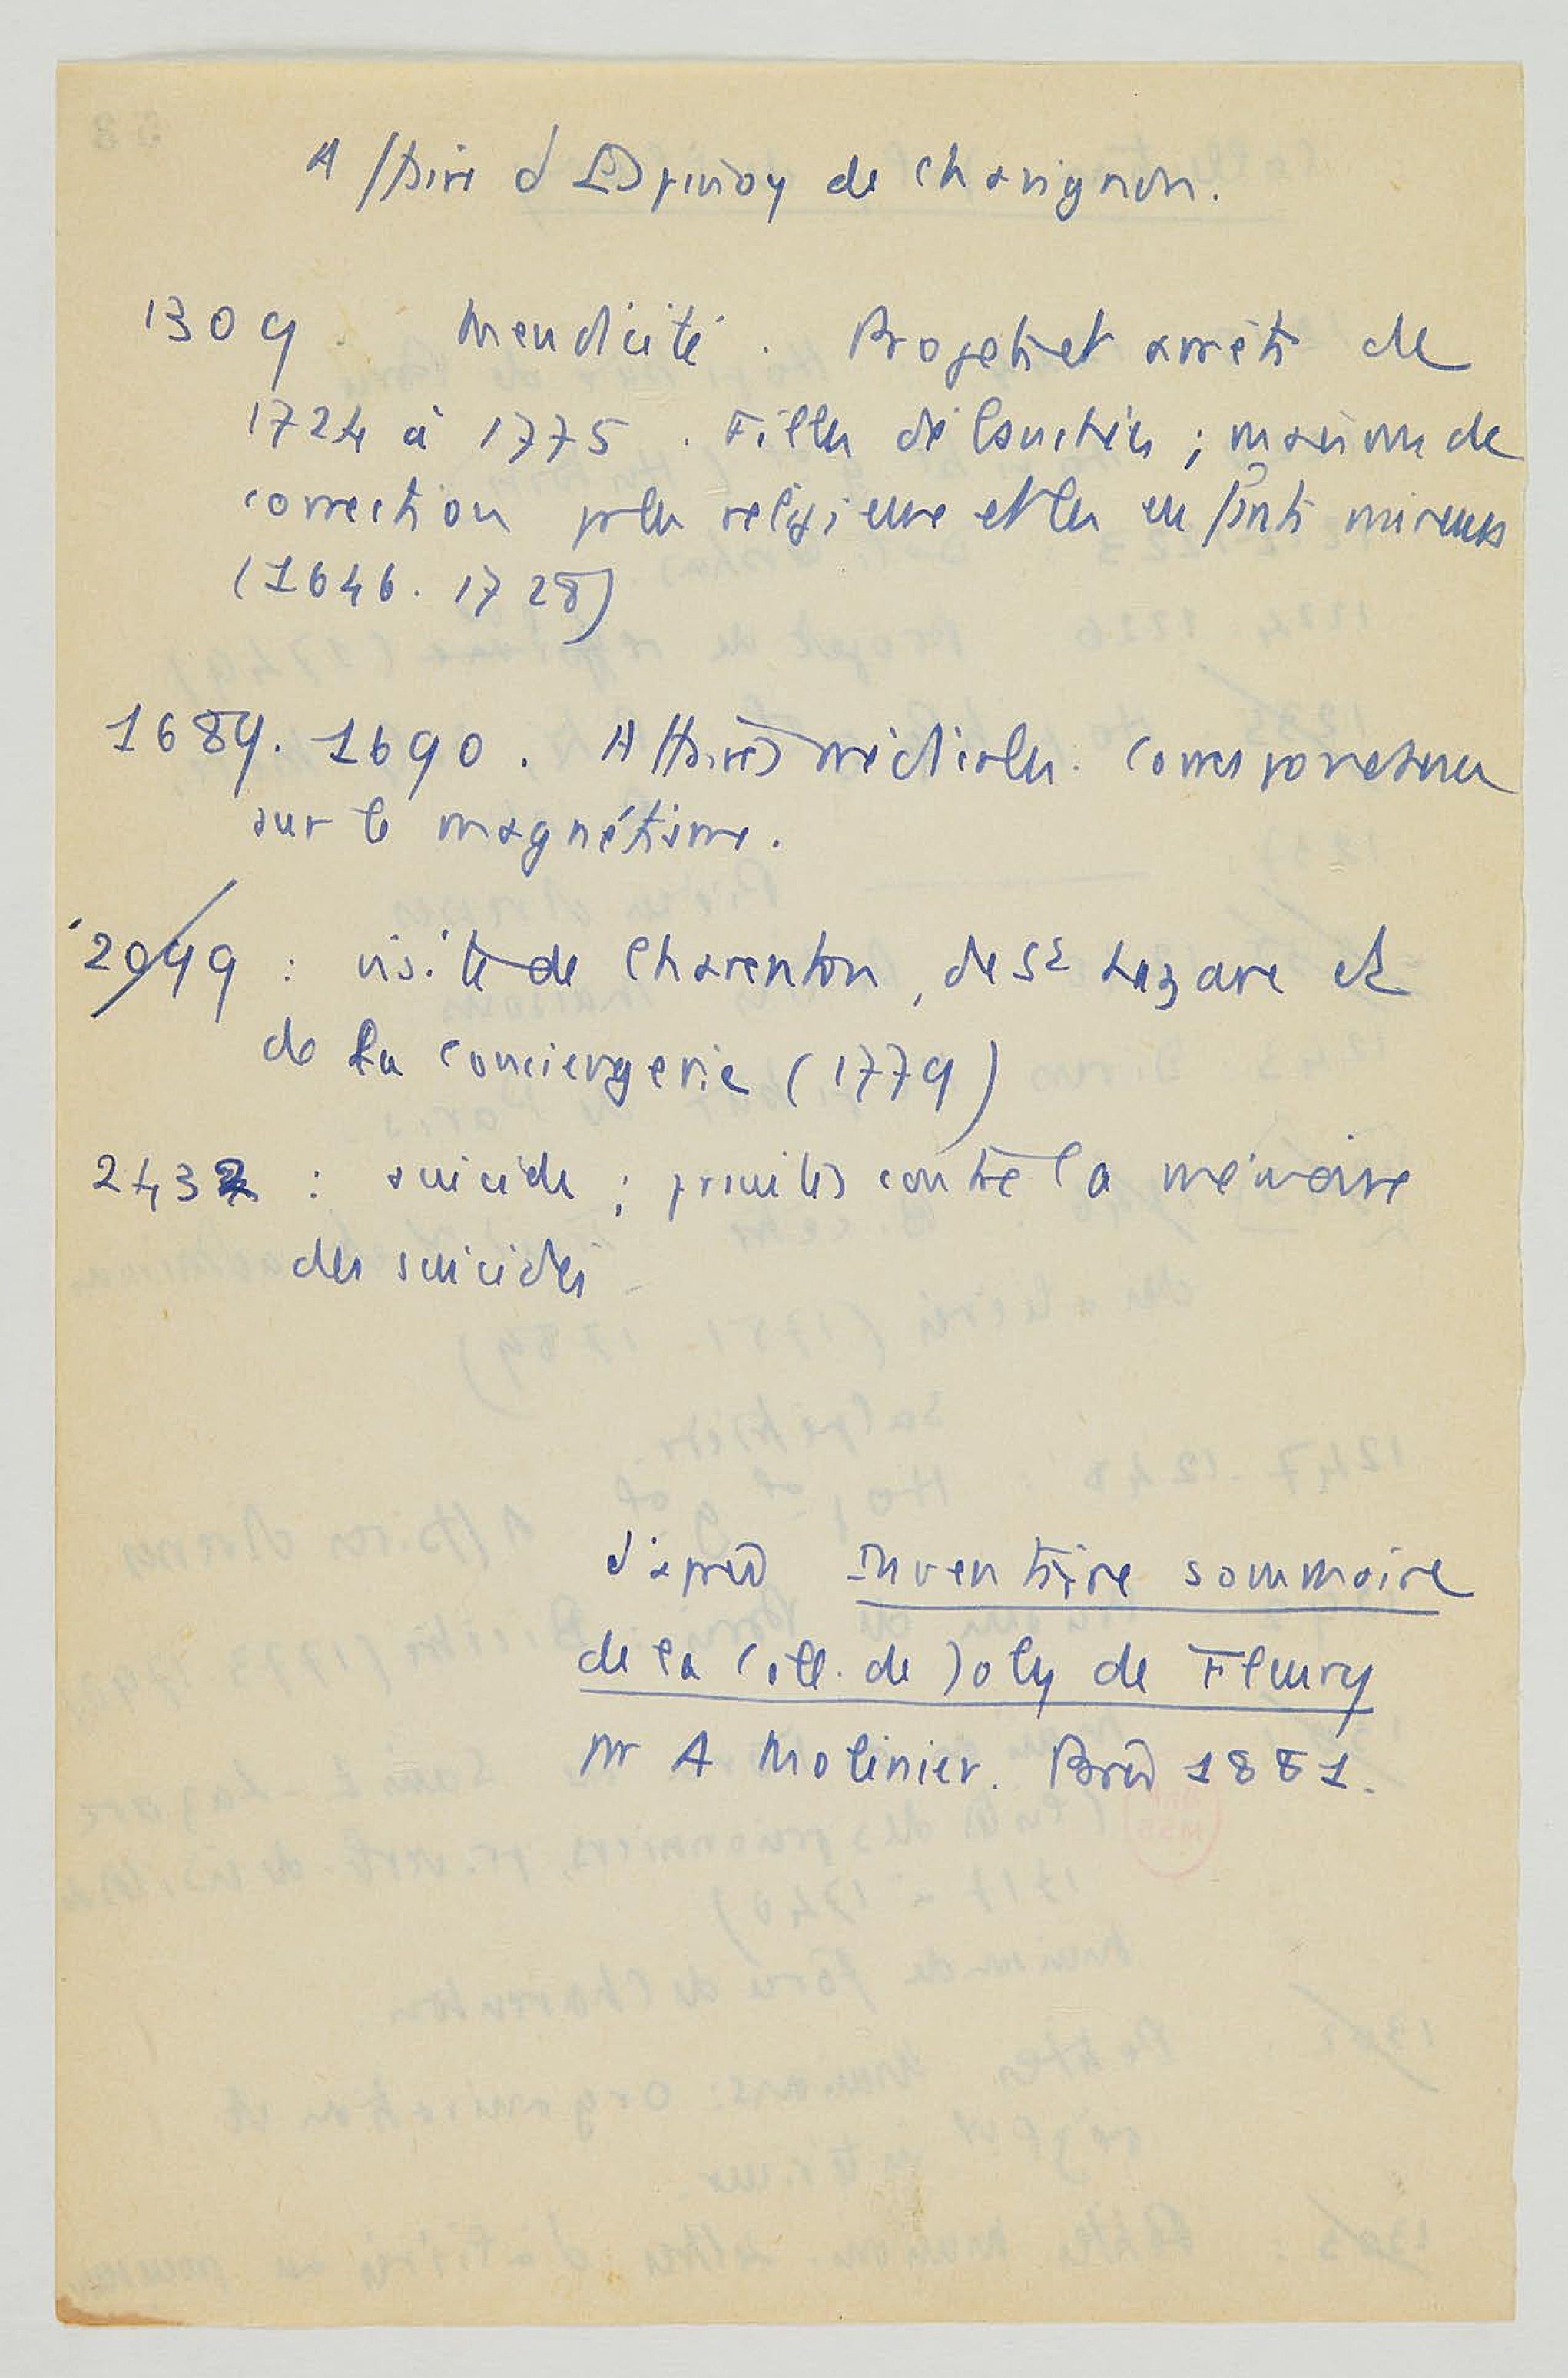 Affaire d'Espinoy de Chavignon.
1309. Mendicité. Projets et arrêts de
1724 à 1775. Filles débauchées ; maisons de
correction pr les religieuses et les enfants mineurs
(1646. 1728)
1689. 1690. Affaires médicales. Correspondance
sur le magnétisme.
2099 : visite de Charenton, de St Lazare et
de la Conciergerie (1779)
2432 : suicide ; procès contre la mémoire
des suicidés
d'après Inventaire sommaire
de la Coll. de Joly de Fleury
pr A Molinier. Paris 1881.